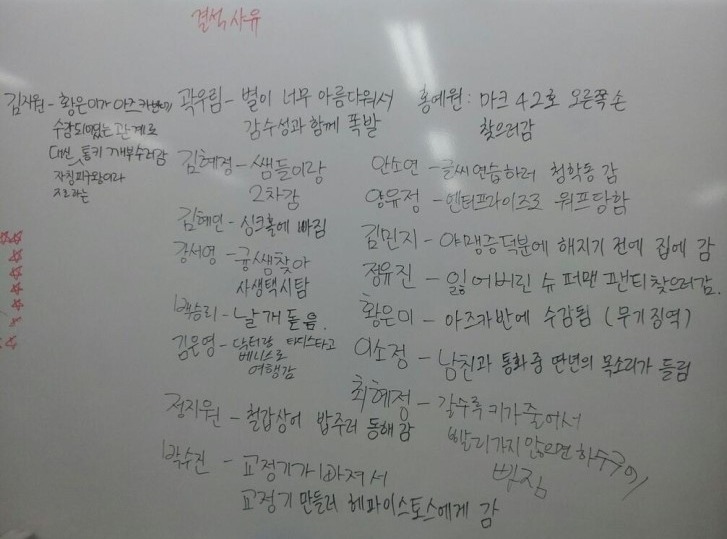 결석사유
김지원 - 황은미가 아즈카반에
수감되어있는 관계로
대신 통키 깨부수러감
자칭피구왕이라
지르라는
곽우림 - 별이 너무 아름다워서
감수성과 함께 폭발
김혜정 - 쌤들이랑
2차감
김혜민 - 싱크홀에 빠짐
강서영 - 귱쌤찾아
사생택시탐
백승리 - 날개돋음.
김은영 - 닥터랑 타디스타고
베니스로
여행감
정지원 - 철갑상어 밥주러 동해감
박수진 - 교정기가 빠져서
교정기 만들러 헤파이스토스에게 감
홍예원 : 마크 42호 오른쪽 손
찾으러감
안소연 - 글씨연습하러 청학동 감
양유정 - 엔터프라이즈로 워프당함
김민지 - 야맹증덕분에 해지기 전에 집에 감
정유진 - 잃어버린 슈퍼맨 팬티찾으러감.
황은미 - 아즈카반에 수감됨 (무기징역)
이소정 - 남친과 통화중 딴년의 목소리가 들림
최혜정 - 갈수록 키가 줄어서
빨리가지 않으면 하수구에
빠짐